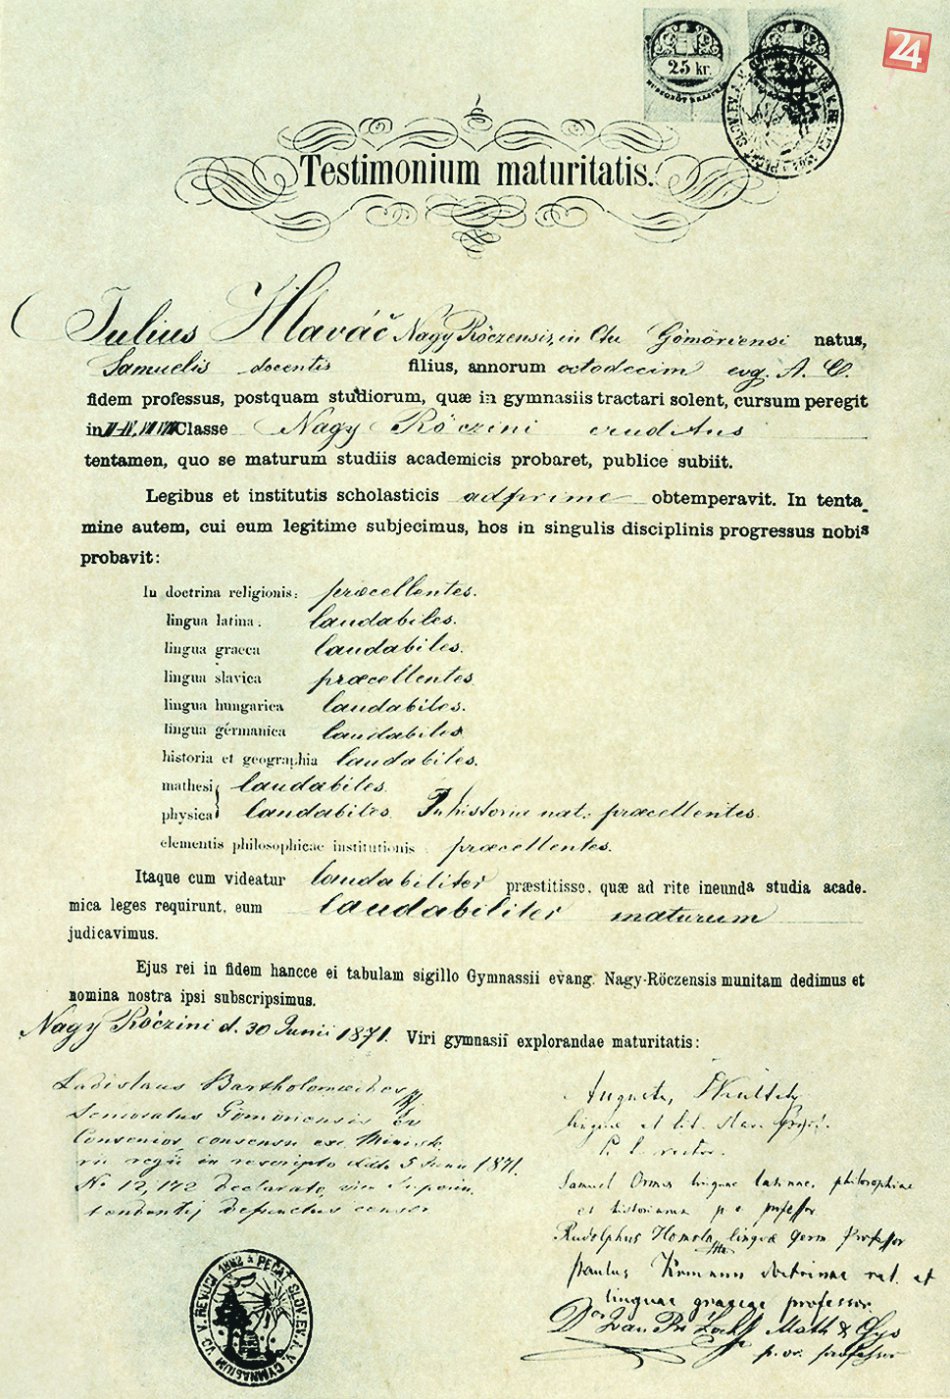 24
25 kr.
Testimonium maturitatis.
Julius Hlaváč Nagy Rőczensis, in Ctu Gömöriensi natus,
Samuelis docentis filius, annorum octodecim evg. A. C.
fidem professus, postquam studiorum, quæ in gymnasiis tractari solent, cursum peregit
in Classe Nagy Rőczini eruditus
tentamen, quo se maturum studiis academicis probaret, publice subiit.
Legibus et institutis scholasticis adprime obtemperavit. In tenta
mine autem, cui eum legitime subjecimus, hos in singulis disciplinis progressus nobis
probavit:
In doctrina religionis: præcellentes.
lingua latina: laudabiles.
lingua graeca laudabiles.
lingua slavica præcellentes
lingua hungarica laudabiles.
lingua germanica laudabiles
historia et geographia laudabiles.
mathesi laudabiles.
physica laudabiles. In historia nat. præcellentes.
elementis philosophicae institutionis præcellentes.
Itaque cum videatur laudabiliter præstitisse, quæ ad rite ineunda studia acade-
mica leges requirunt, eum laudabiliter maturum
judicavimus.
Ejus rei in fidem hancce ei tabulam sigillo Gymnassii evang. Nagy-Röczensis munitam dedimus et
nomina nostra ipsi subscripsimus.
Nagy Rőczini d. 30 Junii 1871. Viri gymnasii explorandae maturitatis:
Ladislaus Bartholomæides
Senioratus Gömöriensis
Consenior consensu exc. Minist.
rii regii in rescripto ddto 5 Junii 1871.
No 12,172 declarato, vice Superin.
tendentis defunctus consen
August
linguae et lit. slav. prof.
rector.
Samuel Ormis linguae latinae, philosophiae
et historiarum p. o. professor
Rudolphus Homola linguæ germ professor
Paulus doctrinae rel. et
linguae graecae professor
Dor Ivan Math &
p. or. professor
PEČAŤ SLOV. EV. A. V. GYMNASIUM VO V. REVÚCI 1862